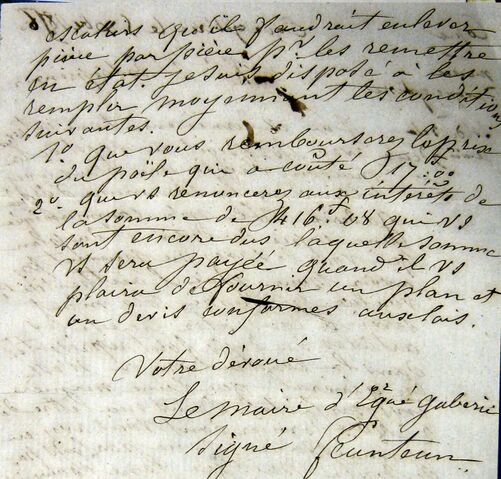 escaliers qu'il faudrait enlever
pièce par pièce pr. les remettre
en état. Je suis disposé à les
remplir moyennant les conditions
suivantes.
1o que vous rembourserez le prix
du poële qui a coûté 17.00
2o que vs renoncerez aux intérêts de
la somme de 416f 08 qui vs
sont encore dus laquelle somme
vs sera payée quand il vs
plaira de fournir un plan et
un devis conformes aux lois.
Votre dévoué
Le maire d'Ergué gabéric
signé Feunteun